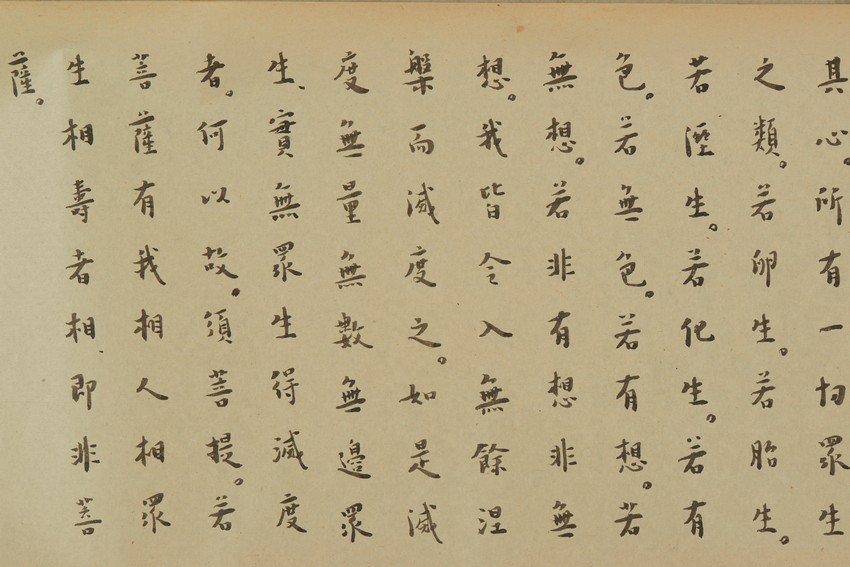 其心。所有一切眾生
之類。若卵生。若胎生。
若溼生。若化生。若有
色。若無色。若有想。若
無想。若非有想非無
想。我皆令入無餘涅
槃而滅度之。如是滅
度無量無數無邊眾
生、實無眾生得滅度
者。何以故。須菩提。若
菩薩有我相人相眾
生相壽者相、即非菩
薩。